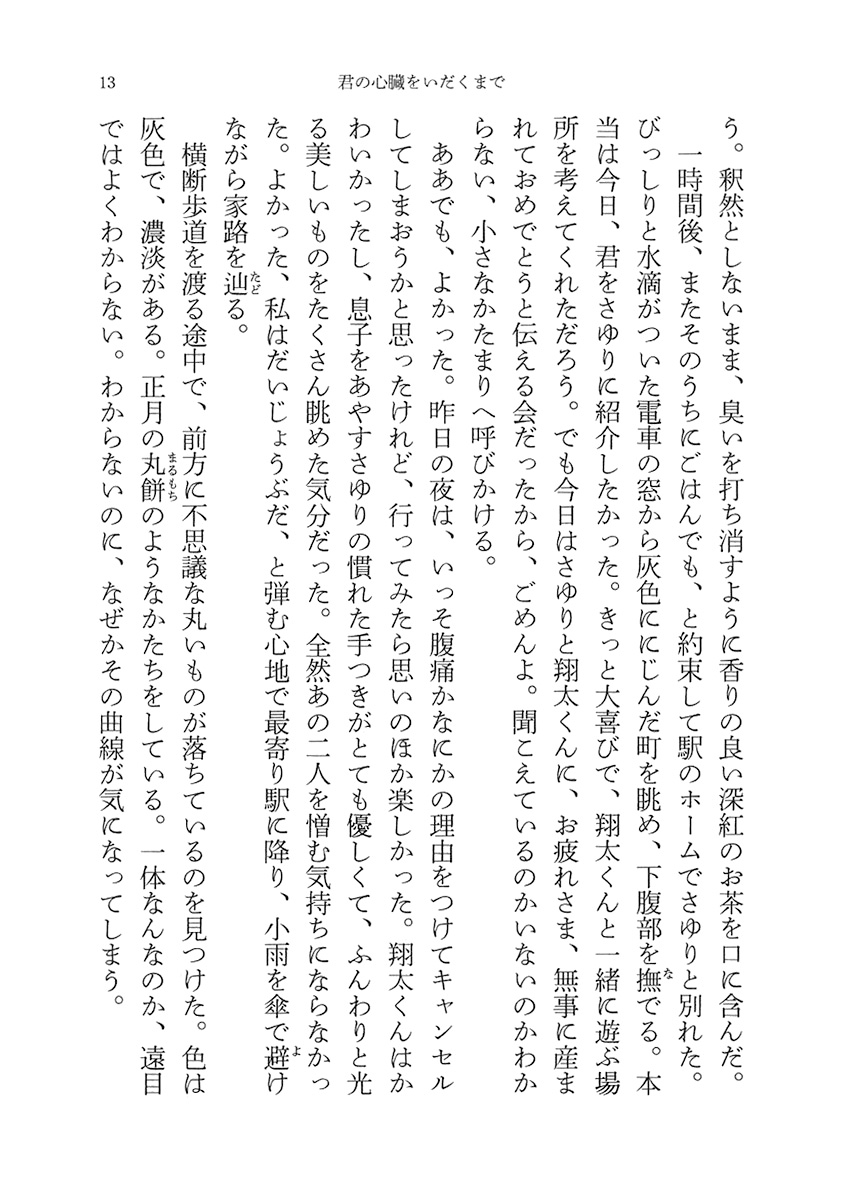 13
君の心臓をいだくまで
う。釈然としないまま、臭いを打ち消すように香りの良い深紅のお茶を口に含んだ。
一時間後、またそのうちにごはんでも、と約束して駅のホームでさゆりと別れた。
びっしりと水滴がついた電車の窓から灰色ににじんだ町を眺め、下腹部を撫でる。本
な
当は今日、君をさゆりに紹介したかった。きっと大喜びで、翔太くんと一緒に遊ぶ場
所を考えてくれただろう。でも今日はさゆりと翔太くんに、お疲れさま、無事に産ま
れておめでとうと伝える会だったから、ごめんよ。聞こえているのかいないのかわか
らない、小さなかたまりへ呼びかける。
ああでも、よかった。昨日の夜は、いっそ腹痛かなにかの理由をつけてキャンセル
してしまおうかと思ったけれど、行ってみたら思いのほか楽しかった。翔太くんはか
わいかったし、息子をあやすさゆりの慣れた手つきがとても優しくて、ふんわりと光
る美しいものをたくさん眺めた気分だった。全然あの二人を憎む気持ちにならなかっ
た。よかった、私はだいじょうぶだ、と弾む心地で最寄り駅に降り、小雨を傘で避け
よ
ながら家路を辿る。
たど
横断歩道を渡る途中で、前方に不思議な丸いものが落ちているのを見つけた。色は
灰色で、濃淡がある。正月の丸餅のようなかたちをしている。一体なんなのか、遠目
まるもち
ではよくわからない。わからないのに、なぜかその曲線が気になってしまう。